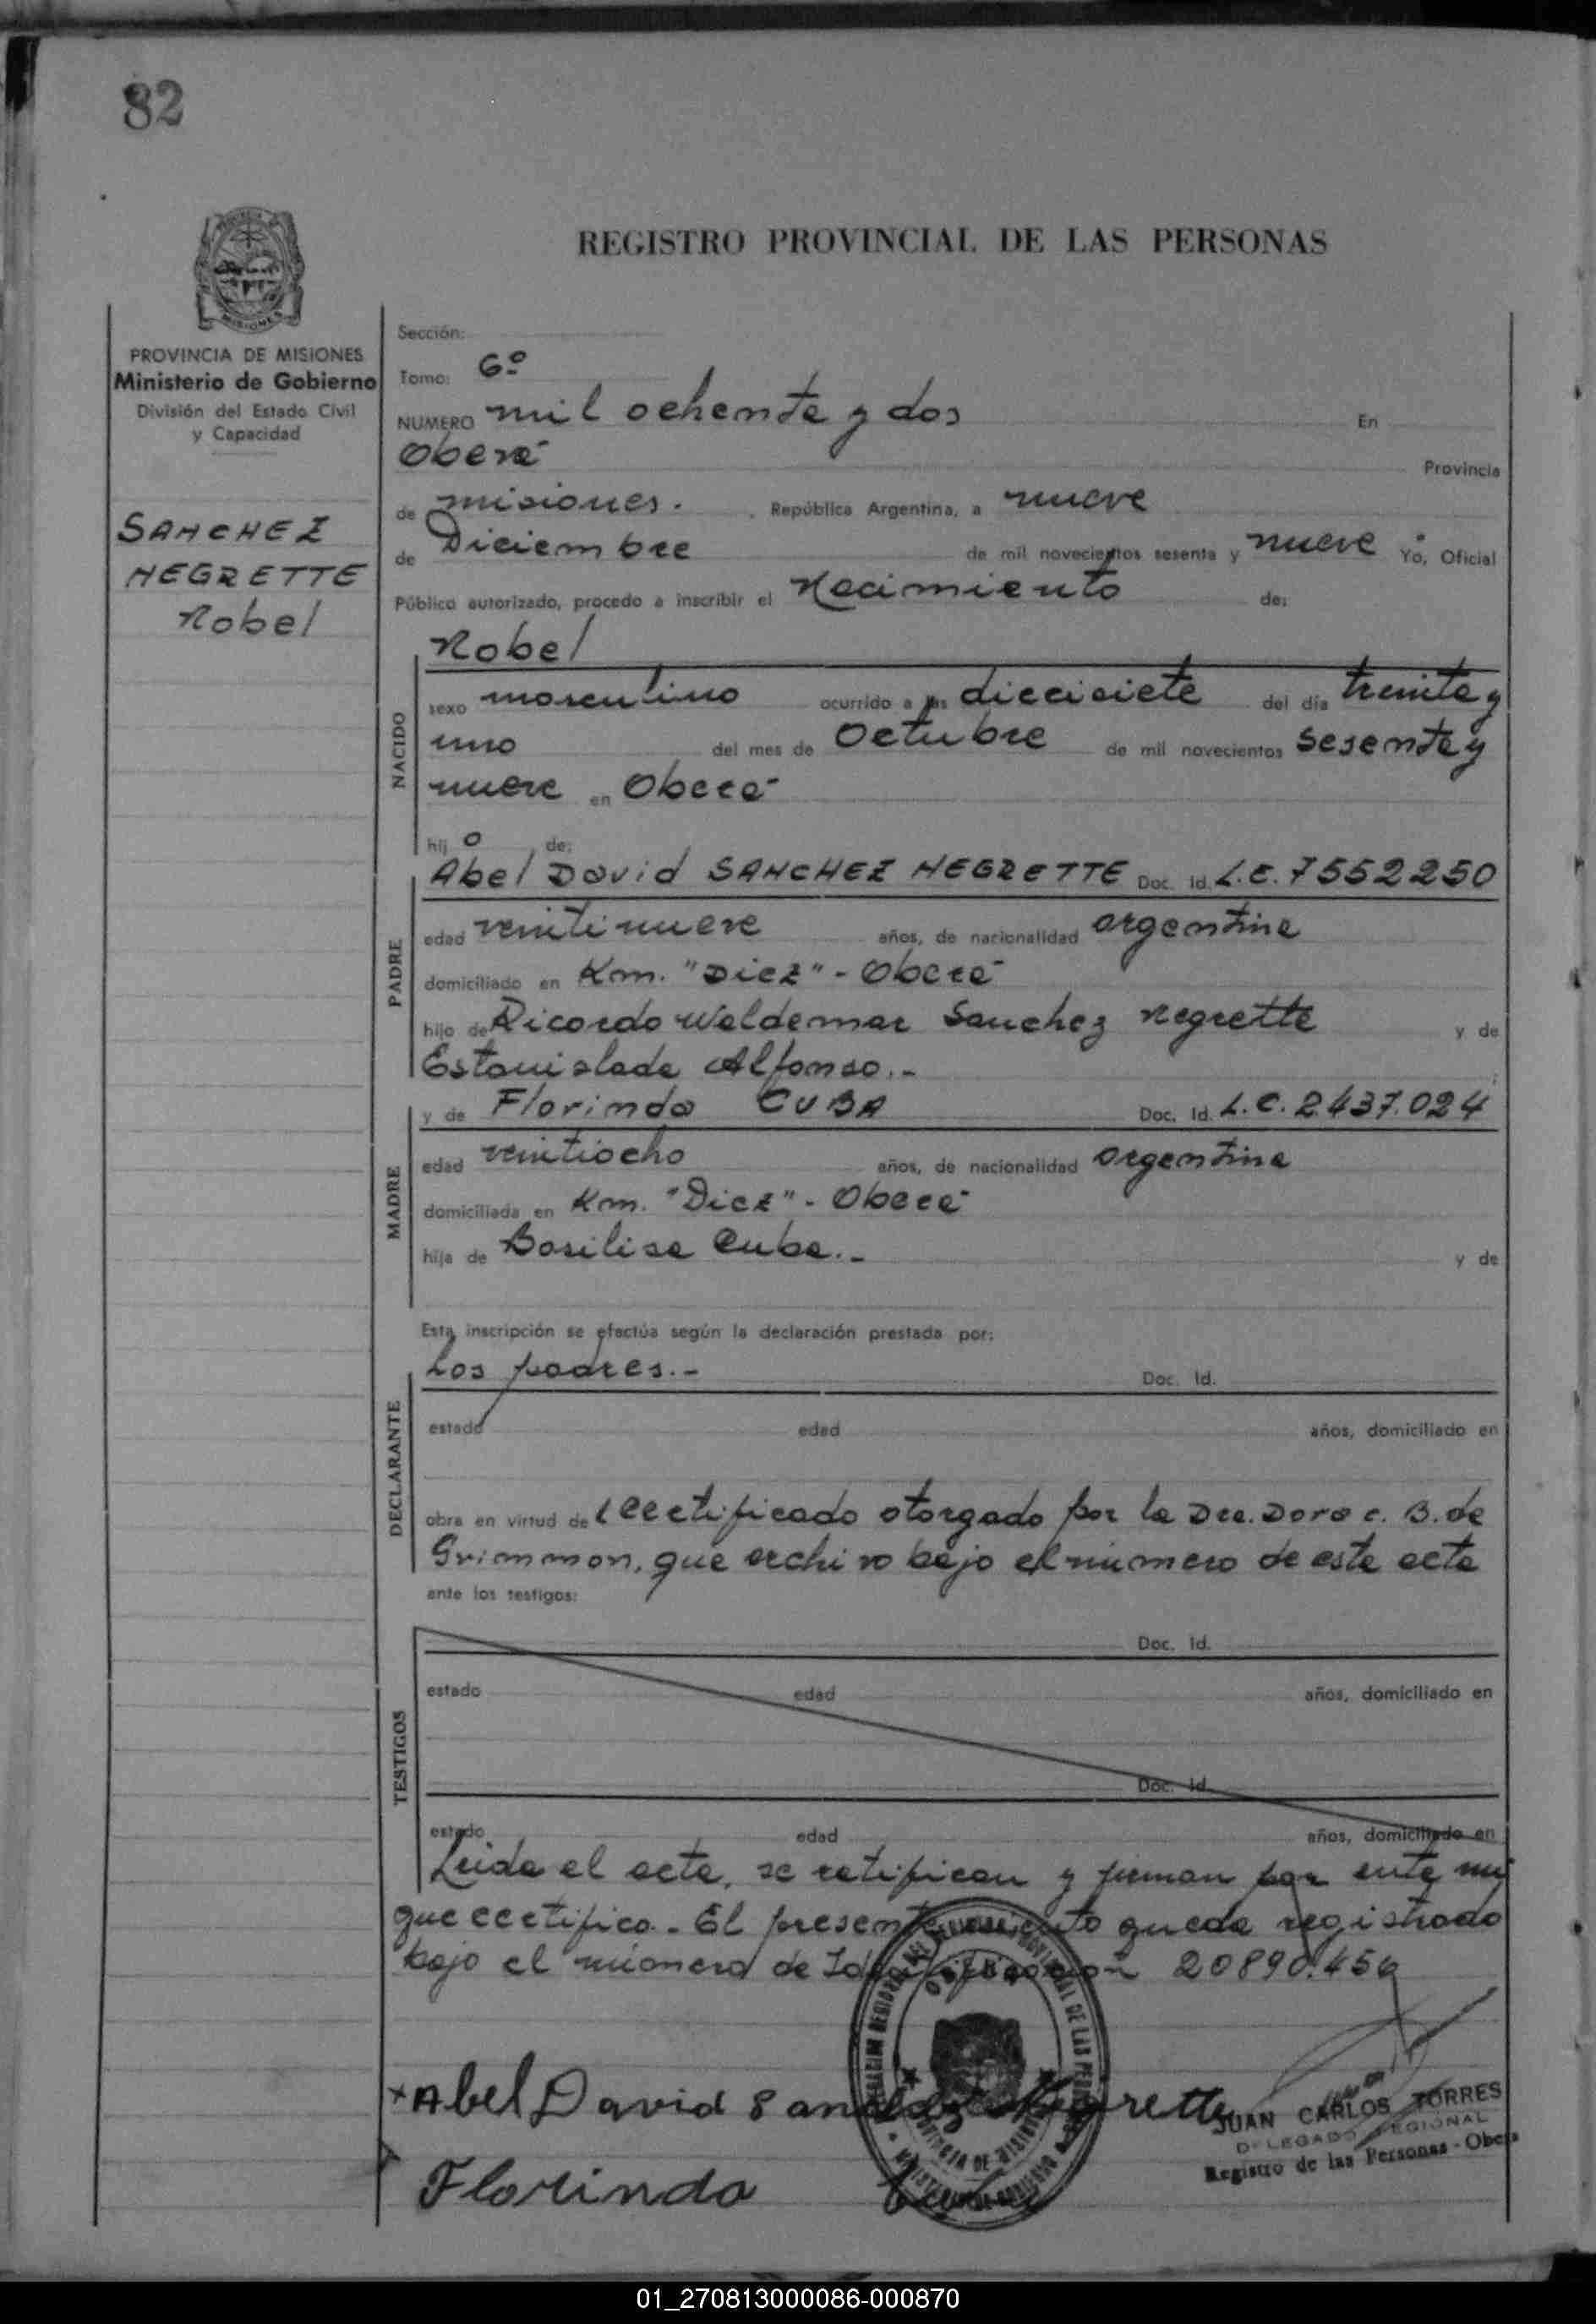 82
REGISTRO PROVINCIAL DE LAS PERSONAS
MISIONES
PROVINCIA DE MISIONES
Ministerio de Gobierno
División del Estado Civil
y Capacidad
SANCHEZ
NEGRETTE
Nobel
Sección:
Tomo: 6º
NUMERO mil ochenta y dos En
Oberá Provincia
de misiones. , República Argentina, a nueve
de Diciembre de mil novecientos sesenta y nueve Yo, Oficial
Público autorizado, procedo a inscribir el Nacimiento de:
NACIDO
Nobel
sexo masculino ocurrido a las diecisiete del día treinta y
uno del mes de Octubre de mil novecientos sesenta y
nueve en Oberá
hij o de:
PADRE
Abel David SANCHEZ NEGRETTE Doc. Id. L.E. 7552250
edad veintinueve años, de nacionalidad argentina
domiciliado en Km. "Diez" - Oberá
hijo de Ricardo Waldemar Sanchez Negrette y de
Estanislada Alfonso.-
MADRE
y de Florinda CUBA Doc. Id. L.C. 2.437.024
edad veintiocho años, de nacionalidad argentina
domiciliada en Km. "Diez" - Oberá
hija de Basilisa Cuba.- y de
Esta inscripción se efectúa según la declaración prestada por:
DECLARANTE
Los padres.- Doc. Id.
estado edad años, domiciliado en
obra en virtud de certificado otorgado por la Dra. Dora C. B. de
Grimmon, que archivo bajo el número de este acta
ante los testigos:
TESTIGOS
Doc. Id.
estado edad años, domiciliado en
Doc. Id.
estado edad años, domiciliado en
Leida el acta, se ratifican y firman por ante mi
que certifico.- El presente nacimiento queda registrado
bajo el número de Identificación 20890.456
Abel David Sanchez Negrette
JUAN CARLOS TORRES
DELEGADO REGIONAL
Registro de las Personas - Oberá
Florinda Cuba
PROVINCIA DE MISIONES
01_270813000086-000870